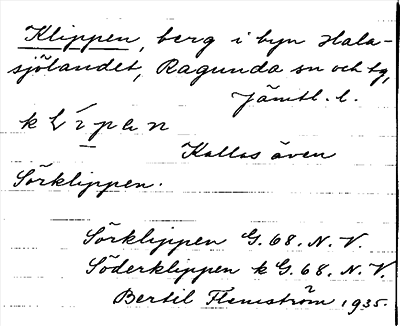 Klippen, berg i byn Hala-
sjölandet, Ragunda sn och tg,
Jämtl. l.
klípan
Kallas även
Sörklippen.
Sörklippen G. 68. N. V.
Söderklippen k G. 68. N. V.
Bertil Flemström 1935.